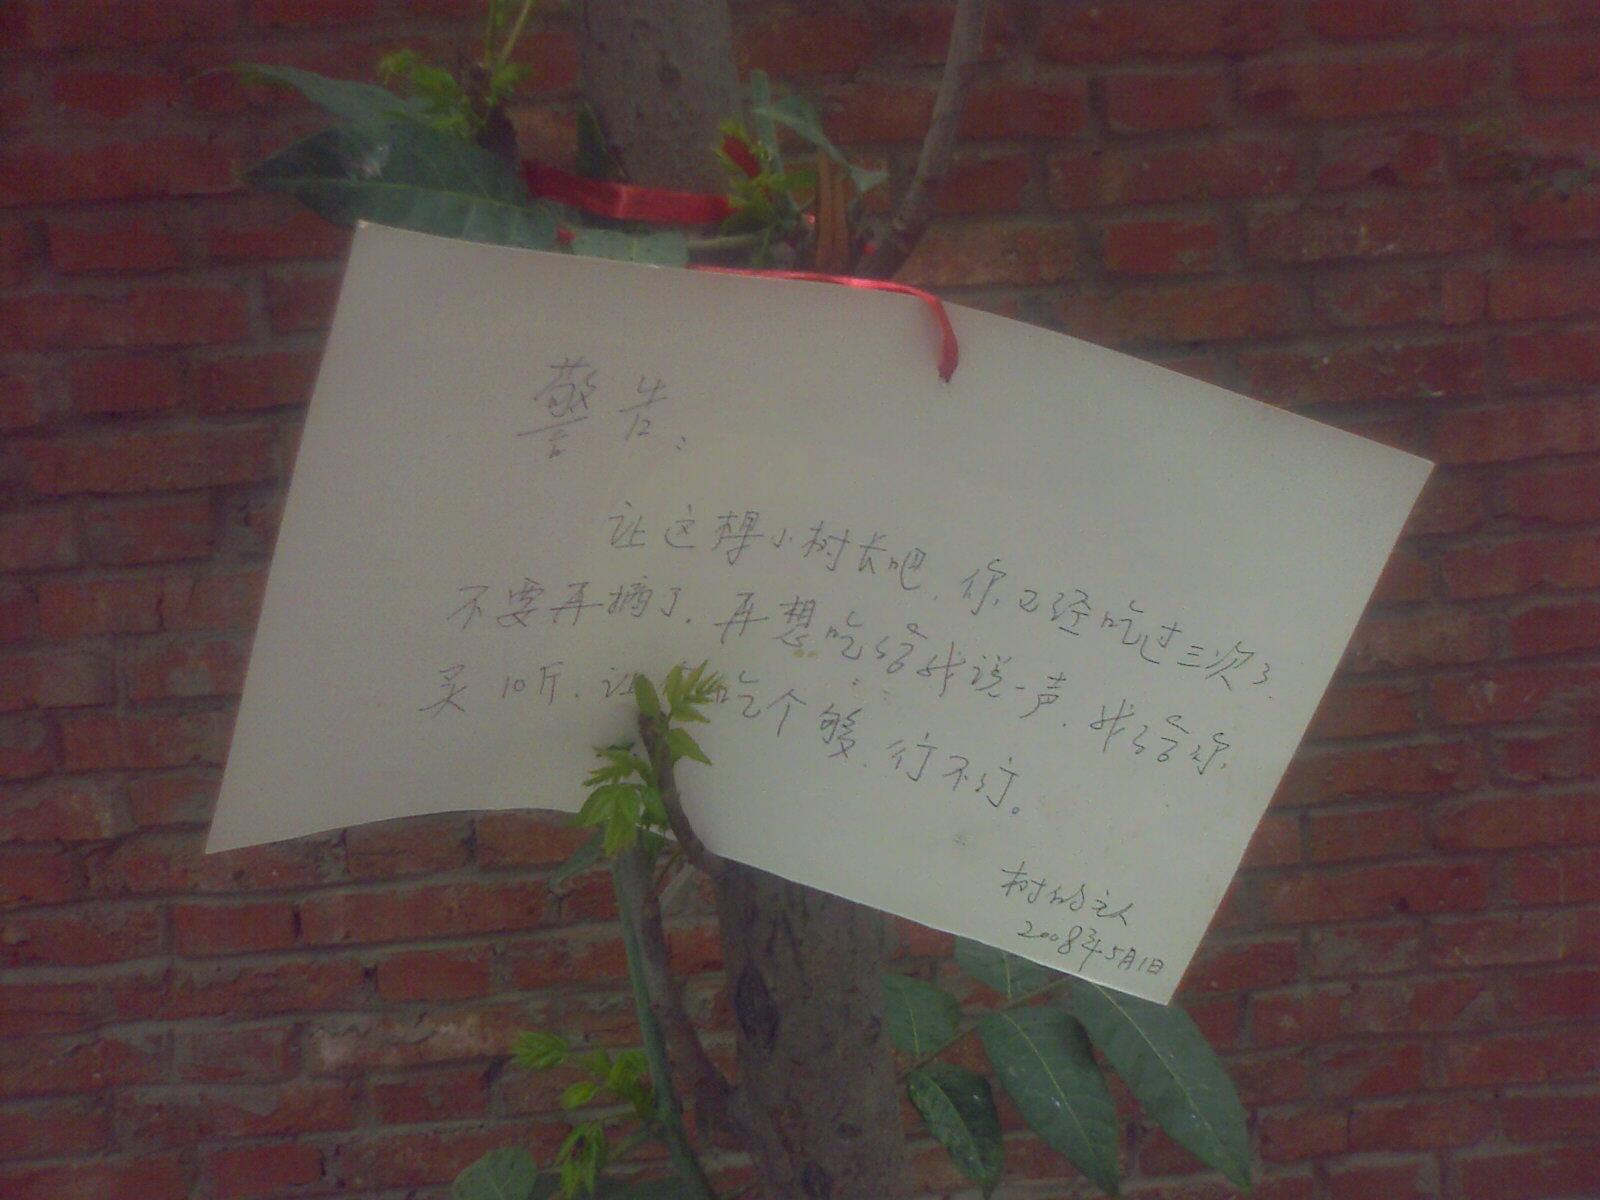 警告：
让这棵小树长吧，你已经吃过三次了，
不要再摘了，再想吃给我说一声，我给你，
买10斤，让你吃个够，行不行。
树的主人
2008年5月1日